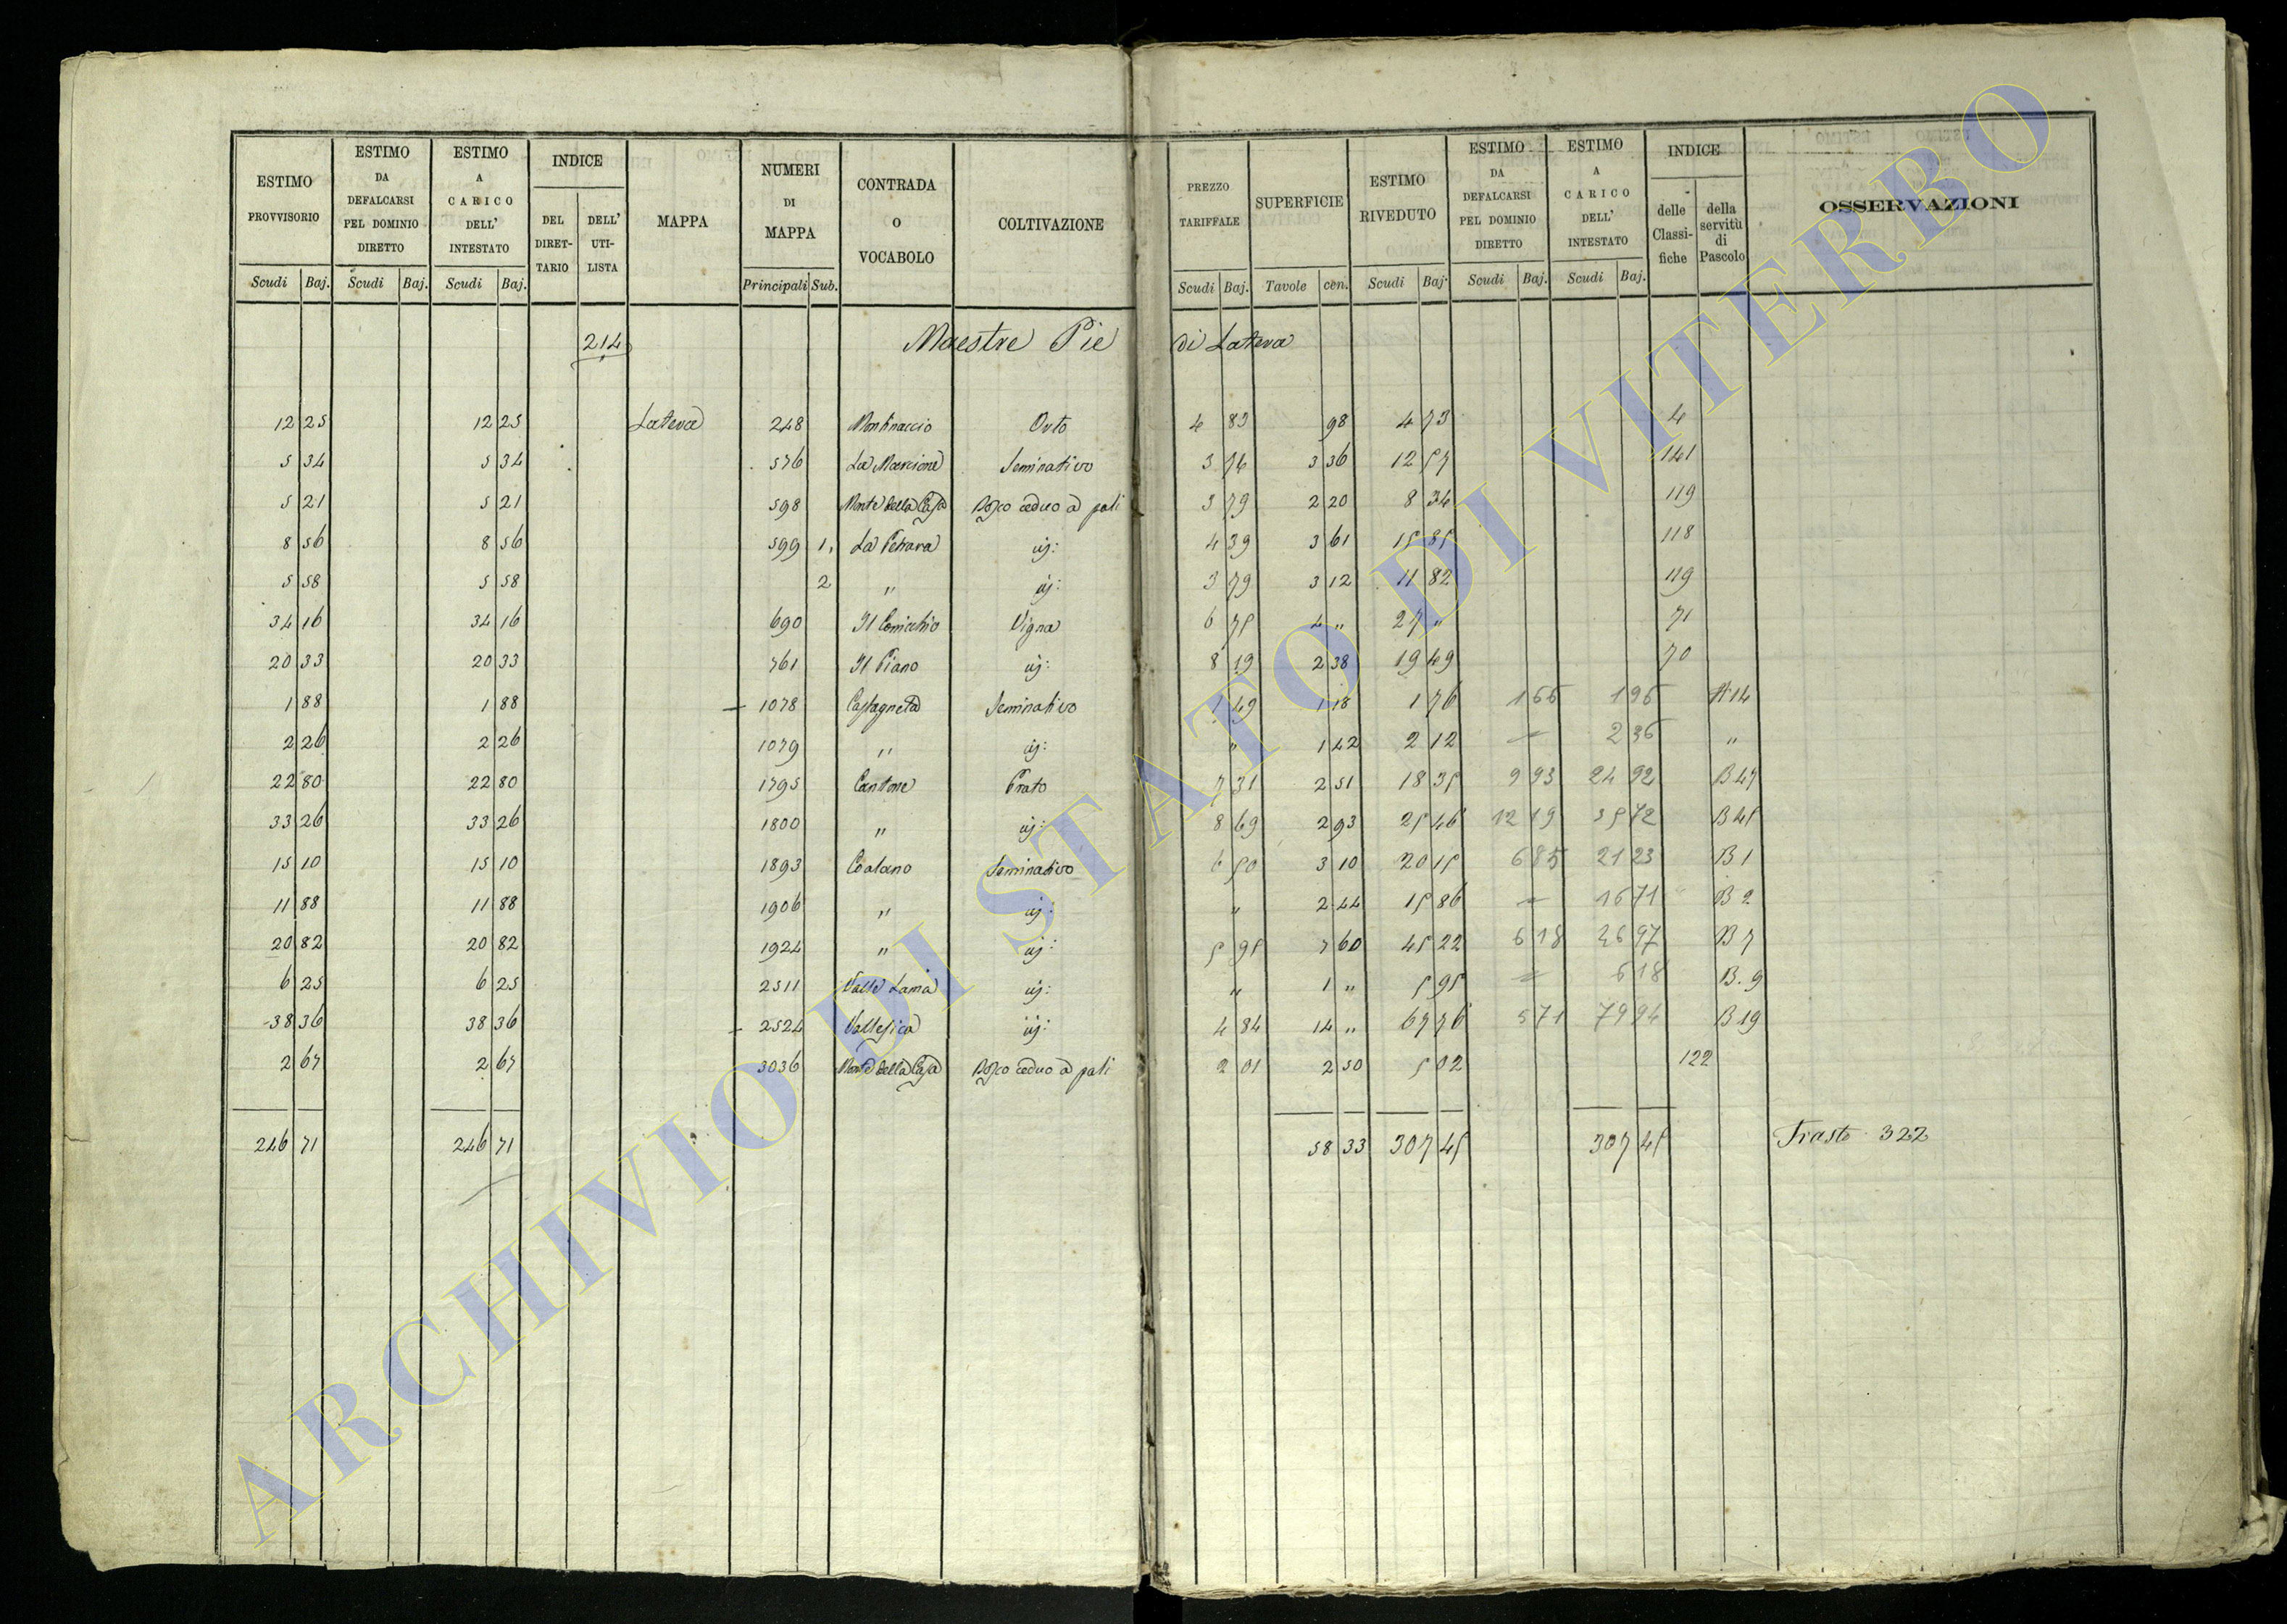 ESTIMO PROVVISORIO Scudi Baj.
ESTIMO DA DEFALCARSI PEL DOMINIO DIRETTO Scudi Baj.
ESTIMO A CARICO DELL' INTESTATO Scudi Baj.
INDICE DEL DIRET-TARIO DELL' UTI-LISTA
MAPPA
NUMERI DI MAPPA Principali Sub.
CONTRADA O VOCABOLO
COLTIVAZIONE
PREZZO TARIFFALE Scudi Baj.
SUPERFICIE Tavole cen.
ESTIMO RIVEDUTO Scudi Baj.
ESTIMO DA DEFALCARSI PEL DOMINIO DIRETTO Scudi Baj.
ESTIMO A CARICO DELL' INTESTATO Scudi Baj.
INDICE delle Classi-fiche della servitù di Pascolo
OSSERVAZIONI
214 Maestre Pie di Latera
12 25 12 25 Latera 248 Montinaccio Orto 4 83 98 4 73 4
5 34 5 34 576 La Marcione Seminativo 3 74 3 36 12 57 141
5 21 5 21 598 Monte della Casa Bosco ceduo a pali 3 79 2 20 8 34 119
8 56 8 56 599 1 La Petrara id: 4 39 3 61 15 85 118
5 58 5 58 2 " id: 3 79 3 12 11 82 119
34 16 34 16 690 Il Vigna 6 75 4 " 27 " 71
20 33 20 33 761 Il Piano id: 8 19 2 38 19 49 70
1 88 1 88 1078 Castagneta Seminativo 1 49 1 18 1 76 1 66 1 96 A 14
2 26 2 26 1079 " id: " 1 42 2 12 — 2 36 "
22 80 22 80 1795 Cantone Prato 7 31 2 51 18 35 9 93 24 92 B 47
33 26 33 26 1800 " id: 8 69 2 93 25 46 12 19 35 72 B 45
15 10 15 10 1893 Coalano Seminativo 6 50 3 10 20 15 6 85 21 23 B 1
11 88 11 88 1906 " id: " 2 44 15 86 — 16 71 B 2
20 82 20 82 1924 " id: 5 95 7 60 45 22 6 18 46 97 B 7
6 25 6 25 2511 Valle Lama id: " 1 " 5 95 — 6 18 B. 9
38 36 38 36 2524 Vallesica id: 4 84 14 " 67 76 5 71 79 94 B 19
2 67 2 67 3036 Monte della Casa Bosco ceduo a pali 2 01 2 50 5 02 122
246 71 246 71 58 33 307 45 307 45 Trasto 322
ARCHIVIO DI STATO DI VITERBO